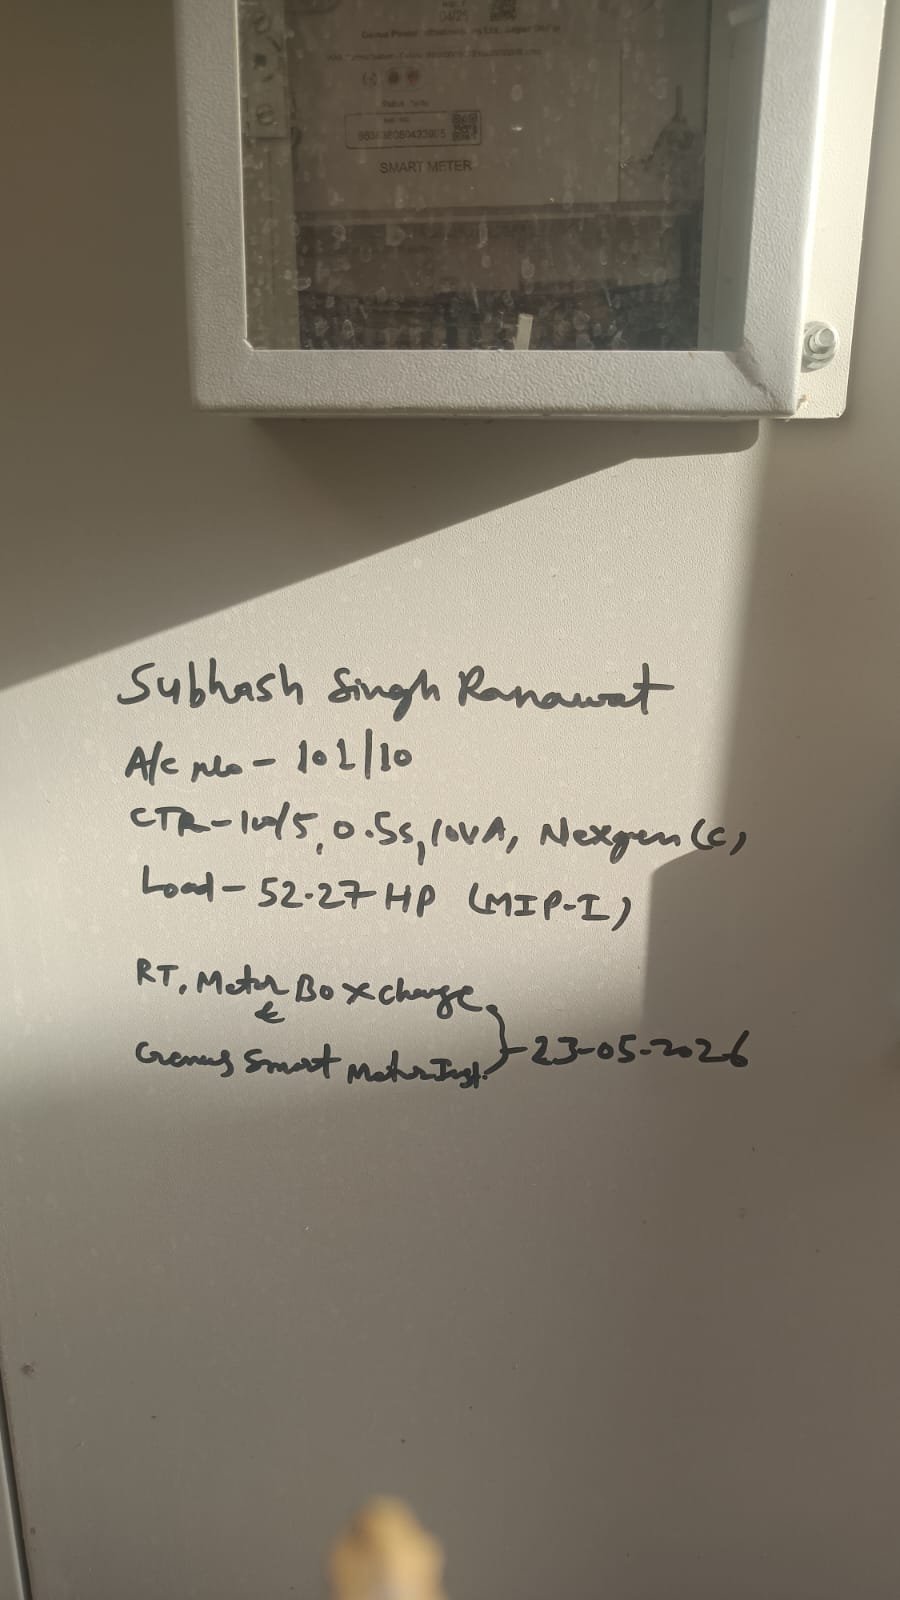 04/25
SMART METER
Subhash Singh Ranawat
A/c No - 101/10
CTR - 100/5, 0.5s, 10VA, Nexgen (C)
Load - 52.27 HP (MIP-I)
RT, Meter Box change
&
Genus Smart Meter Inst. } - 23-05-2026